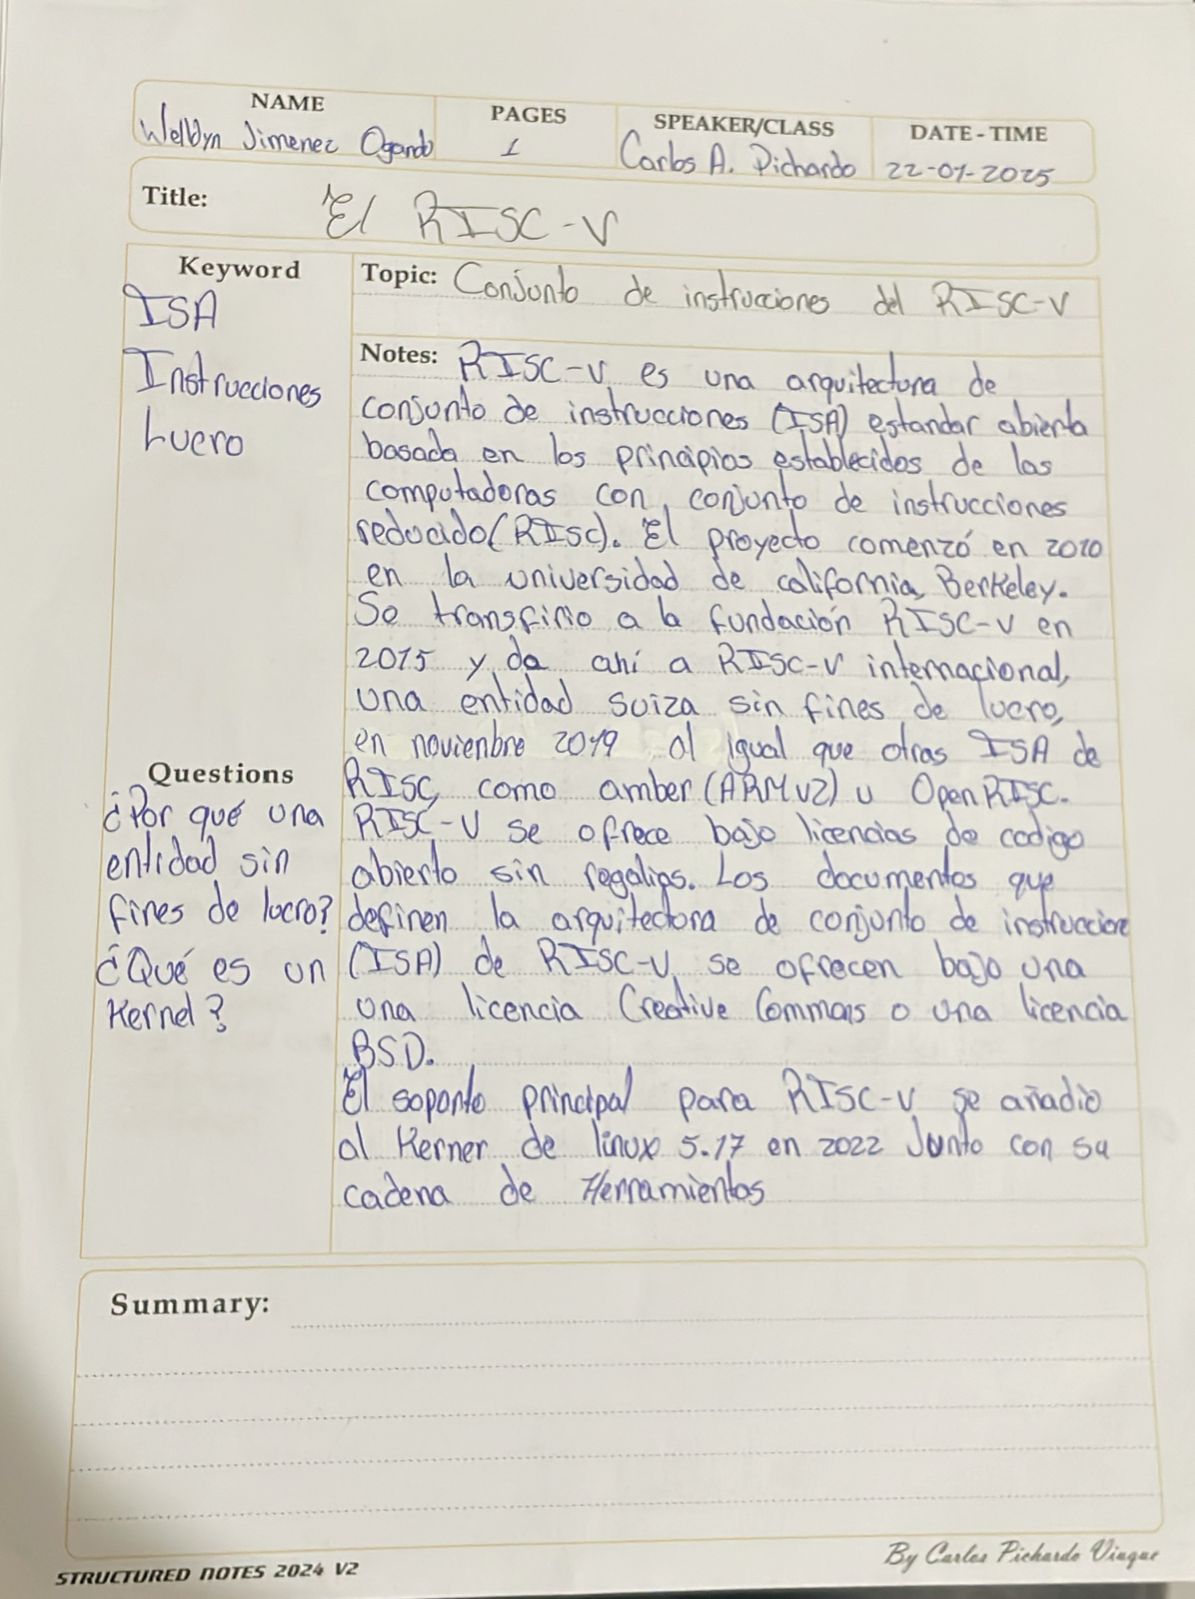 NAME
Welbyn Jimenez Ogando
PAGES
1
SPEAKER/CLASS
Carlos A. Pichardo
DATE - TIME
22-01-2025
Title: El RISC-V
Keyword
ISA
Instrucciones
Lucro
Questions
¿Por qué una
entidad sin
fines de lucro?
¿Qué es un
Kernel?
Topic: Conjunto de instrucciones del RISC-V
Notes: RISC-V es una arquitectura de
conjunto de instrucciones (ISA) estandar abierta
basada en los principios establecidos de las
computadoras con conjunto de instrucciones
reducido (RISC). El proyecto comenzó en 2010
en la universidad de california, Berkeley.
Se transfirio a la fundación RISC-V en
2015 y da ahí a RISC-V internacional,
una entidad suiza sin fines de lucro,
en novienbre 2019 al igual que otras ISA de
RISC, como amber (ARMv2) u OpenRISC.
RISC-V se ofrece bajo licencias de codigo
abierto sin regalias. Los documentos que
definen la arquitectura de conjunto de instruccione
(ISA) de RISC-V, se ofrecen bajo una
una licencia Creative Commons o una licencia
BSD.
El soporte principal para RISC-V se añadio
al Kerner de linux 5.17 en 2022 Junto con su
cadena de Herramientas
Summary:
STRUCTURED NOTES 2024 V2
By Carlos Pichardo Viuque